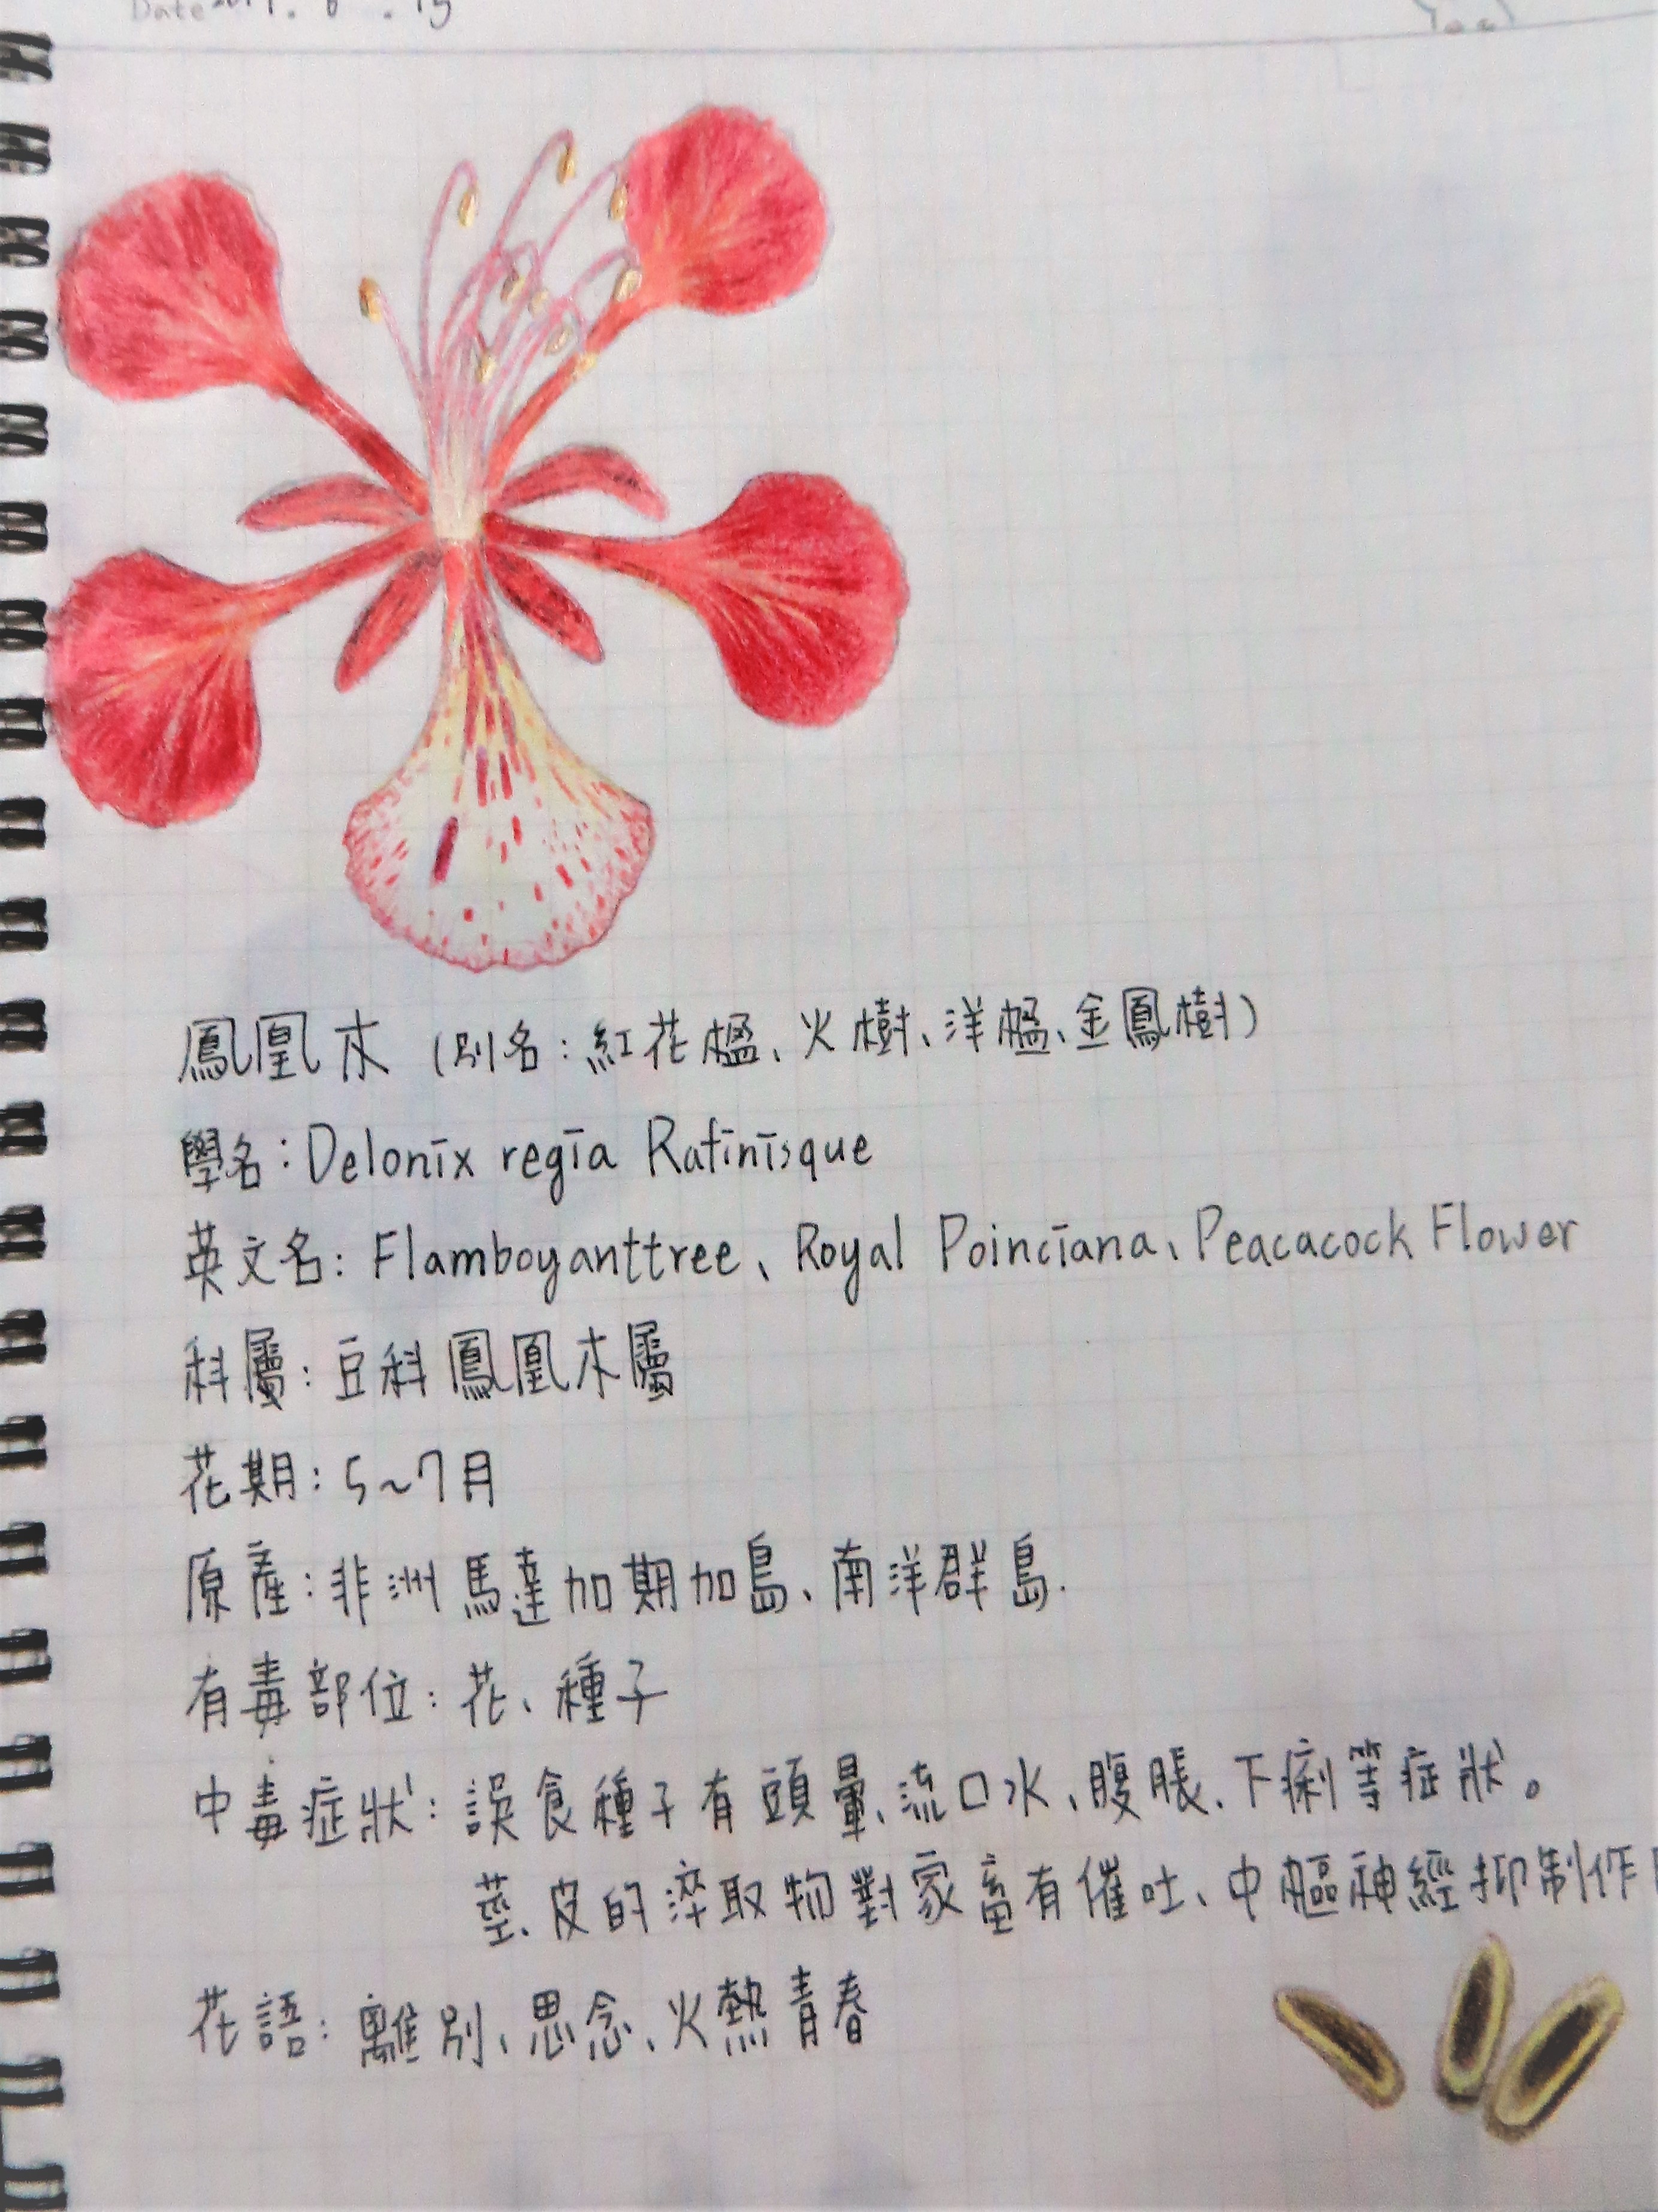 鳳凰木（別名：紅花楹、火樹、洋楹、金鳳樹）
學名：Delonix regia Rafinisque
英文名：Flamboyanttree、Royal Poinciana、Peacacock Flower
科屬：豆科鳳凰木屬
花期：5~7月
原產：非洲馬達加期加島、南洋群島.
有毒部位：花、種子
中毒症狀：誤食種子有頭暈、流口水、腹脹、下痢等症狀。
莖、皮的淬取物對家畜有催吐、中樞神經抑制作
花語：離別、思念、火熱青春